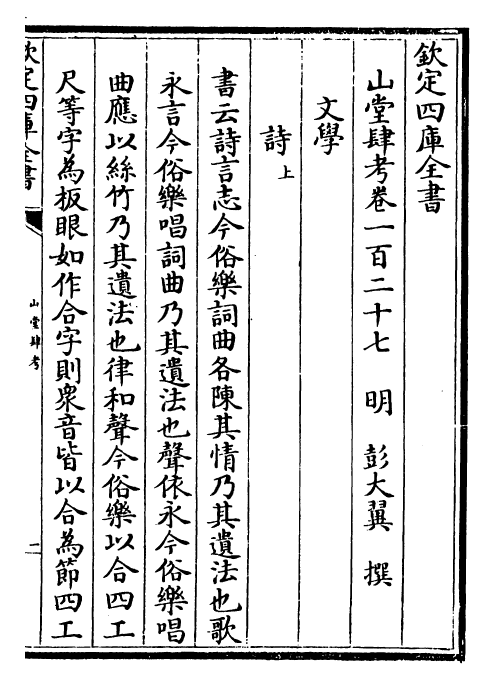 欽定四庫全書
山堂肆考卷一百二十七　明　彭大翼　撰
文學
詩上
書云詩言志今俗樂詞曲各陳其情乃其遺法也歌
永言今俗樂唱詞曲乃其遺法也聲依永今俗樂唱
曲應以絲竹乃其遺法也律和聲今俗樂以合四工
尺等字為板眼如作合字則衆音皆以合為節四工
欽定四庫全書
山堂肆考
一